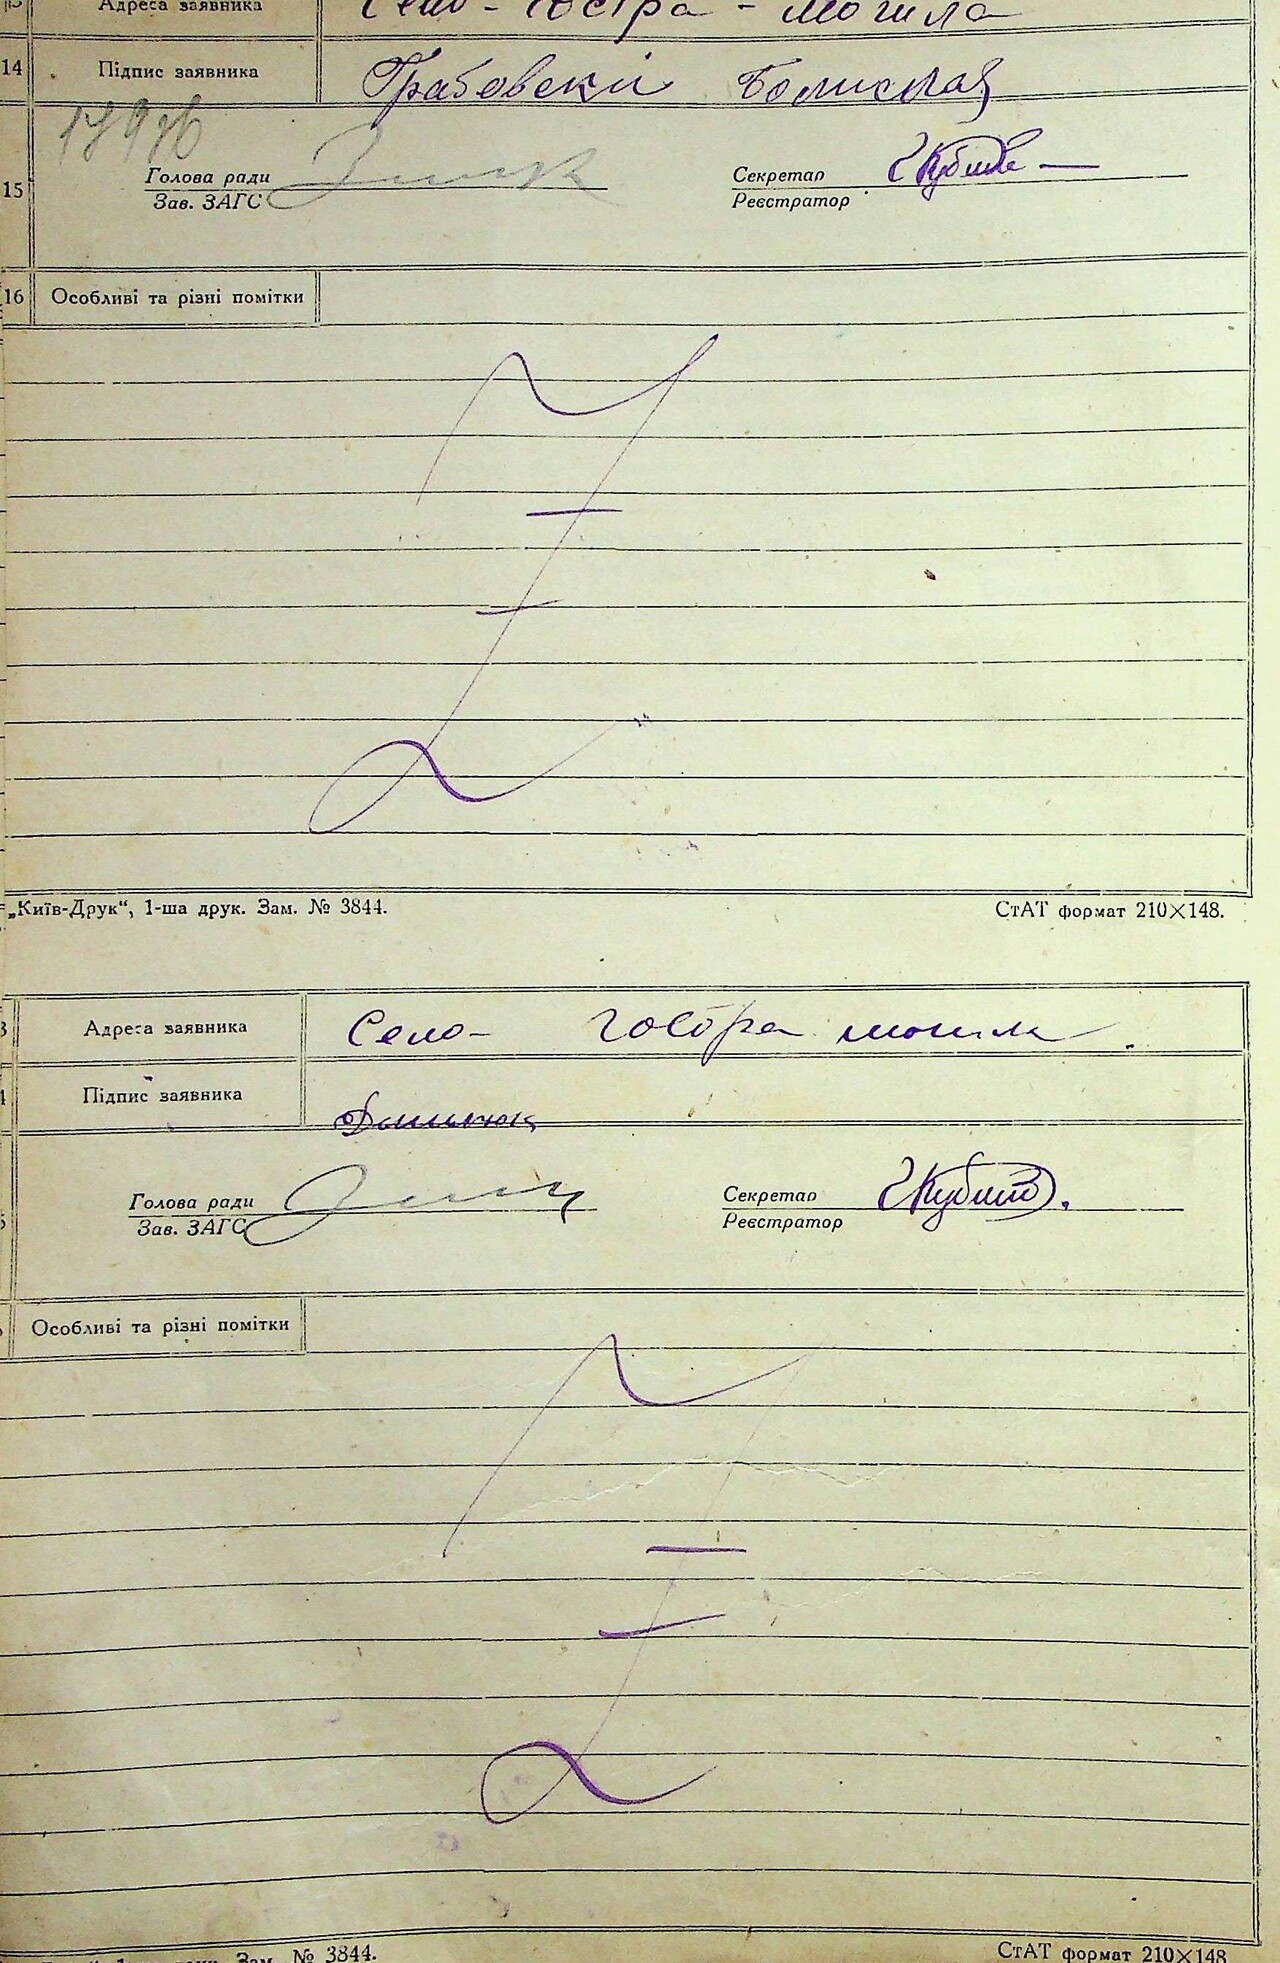 13 Адреса заявника Село - Гостра - могила
14 Підпис заявника Грабовски Болислав
15 Голова ради Секретар
Зав. ЗАГС Реєстратор
16 Особливі та різні помітки
„Київ-Друк“, 1-ша друк. Зам. № 3844. СтАТ формат 210×148.
3 Адреса заявника Село - Гостра могила.
Підпис заявника
Голова ради Секретар
Зав. ЗАГС Реєстратор
Особливі та різні помітки
Зам. № 3844. СтАТ формат 210×148